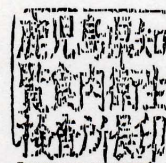 鹿児島県知
覧食肉衛生
検査所長印